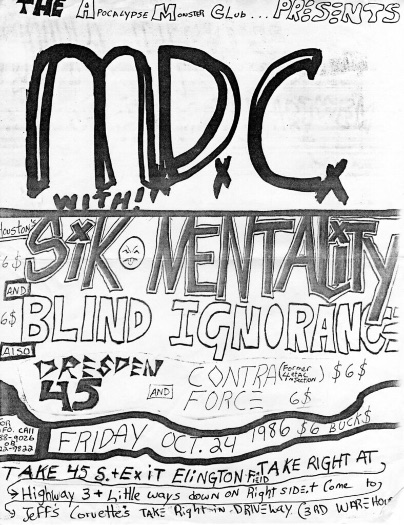 THE APOCALYPSE MONSTER CLUB... PRESENTS
M.D.C.
WITH!
Houston's
6$ SiK MENTALiTy
AND
6$ BLIND IGNORANCE
ALSO
DRESDEN 45
AND
CONTRA FORCE (Former Lethal Insection) $6$
6$
FOR INFO. CAll
OR
FRIDAY OCT. 24 1986 $6 BUCK$
TAKE 45 S. + ExiT ElINGTON FiElD TAKE RIGHT AT
Highway 3 + Little ways down on Right side + Come to
Jeff's Corvette's TAKE Right in DRiVEWAY (3RD WAREHOU